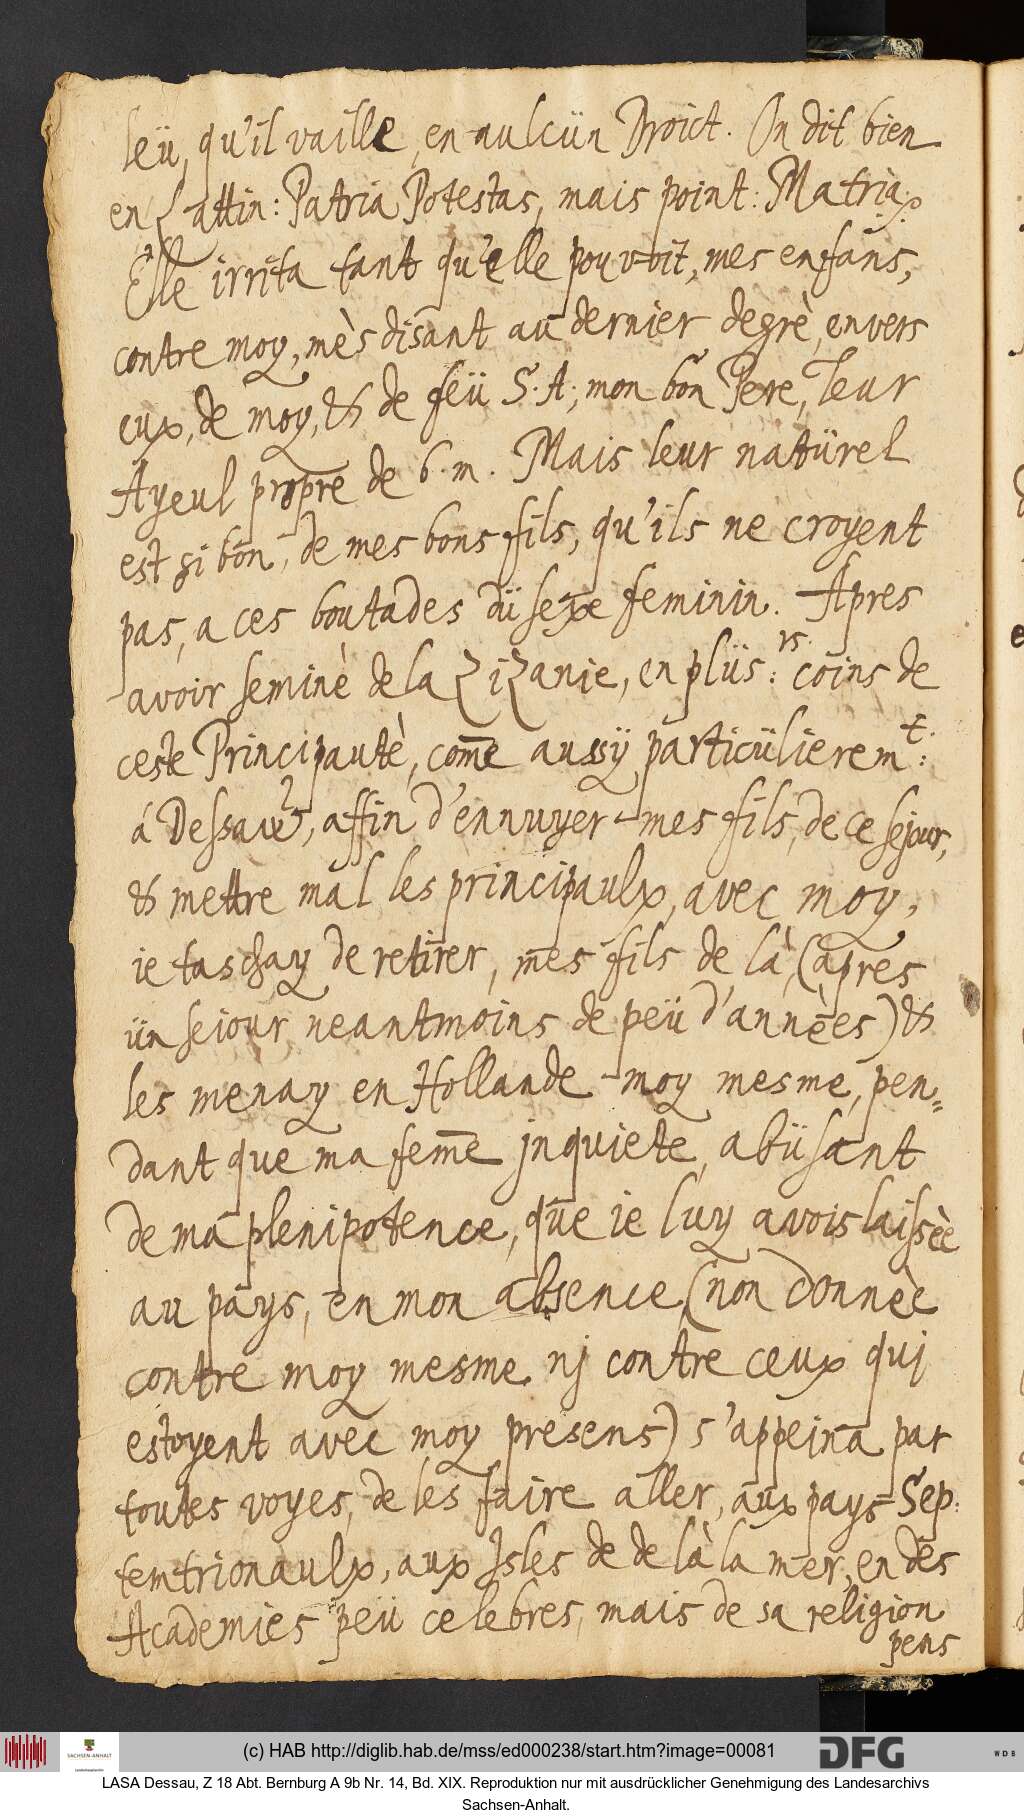 leü, qu'il vaille, en aulcün Droict. On dit bien
en Lattin: Patria Potestas, mais point: Matria.
Elle irrita tant qu'elle pouvoit, mes enfans,
contre moy, mèsdisant au dernier degrè, envers
eux, de moy, & de feü S. A.; mon bon Pere, leur
Ayeul propre de b. m. Mais leur natürel
est si bon, de mes bons fils, qu'ils ne croyent
pas, a ces boutades dü sexe feminin. Apres
avoir seminè de la Zizanie, en plüs:rs. coins de
ceste Principautè, com̄e aussÿ particülierem:t.
á Dessaw, affin d'ennuyer mes fils, de ce sejour,
& mettre mal les principaulx, avec moy,
ie taschay de retirer, mes fils de là, (apres
ün seiour neantmoins de peü d'annèes) &
les menay en Hollande moy mesme, pen=
dant que ma fem̄e jnquiete, abüsant
de ma plenipotence, que ie luy avois laissèe
au pays, en mon absence, (non donnèe
contre moy mesme nj contre ceux quj
estoyent avec moy presens) s'appeina par
toutes voyes, de les faire aller, aux pays Sep:
temtrionaulx, aux Isles de de là la mer, en des
Academies peü celebres, mais de sa religion
pens
(c) HAB http://diglib.hab.de/mss/ed000238/start.htm?image=00081
SACHSEN-ANHALT
DFG
WDB
LASA Dessau, Z 18 Abt. Bernburg A 9b Nr. 14, Bd. XIX. Reproduktion nur mit ausdrücklicher Genehmigung des Landesarchivs
Sachsen-Anhalt.